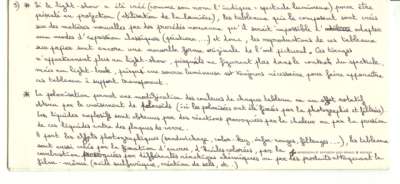 5) * Si le light-show a été créé (comme son nom l'indique : spectacle lumineux) pour être
puis en projection (utilisation de la lumière), les tableaux qui le composent sont créés
sur des matières nouvelles par des procédés nouveaux qu'il serait impossible d'adapter
aux modes d'expression classiques (peinture...) et donc, les reproductions de ces tableaux
sur papier sont encore une nouvelle forme originale de l'art pictural. Ces tirages
n'appartiennent plus au light-show, puisqu'ils ne figurent plus dans le contexte du spectacle,
mais au light-book, puisque une source lumineuse est toujours nécessaire pour faire apparaître
ces tableaux à support transparent.
* La polarisation permet une modification des couleurs de chaque tableau ou un effet rotatif
obtenu par le croisement de polaroïds (ici les polarisés ont été fixés par la photographie et filtres)
Les liquides explosifs sont obtenus par des réactions provoquées par la chaleur ou par la pression
de ces liquides entre des plaques de verre.
À part les effets photographiques (sandwichage, color-key, infra-rouges, filtrages...), les tableaux
sont aussi créés par la fonction d'encres, d'huiles colorées, par la
combustion provoquée par différentes réactions chimiques ou par des produits attaquant le
film-même (acide sulfurique, réaction de sels, etc.)